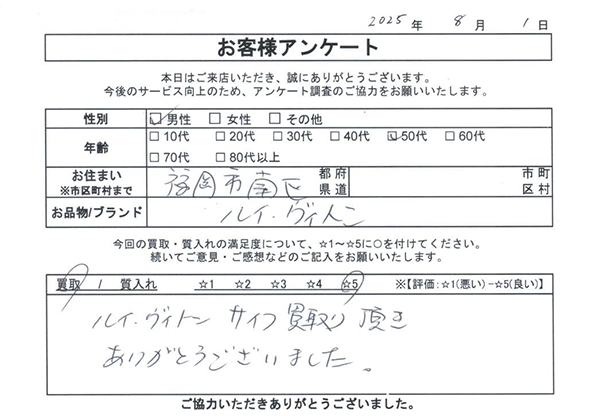 2025 年 8 月 1 日
お客様アンケート
本日はご来店いただき、誠にありがとうございます。
今後のサービス向上のため、アンケート調査のご協力をお願いいたします。
性別 ☑ 男性 □ 女性 □ その他
年齢 □ 10代 □ 20代 □ 30代 □ 40代 ☑ 50代 □ 60代
□ 70代 □ 80代以上
お住まい ※市区町村まで 福岡市南区 都府県道 市町区村
お品物/ブランド ルイ・ヴィトン
今回の買取・質入れの満足度について、☆1～☆5に○を付けてください。
続いてご意見・ご感想などのご記入をお願いいたします。
買取 / 質入れ ☆1 ☆2 ☆3 ☆4 ☆5 ※【評価:☆1(悪い)-☆5(良い)】
ルイ・ヴィトン サイフ 買取り 頂き
ありがとうございました。
ご協力いただきありがとうございました。